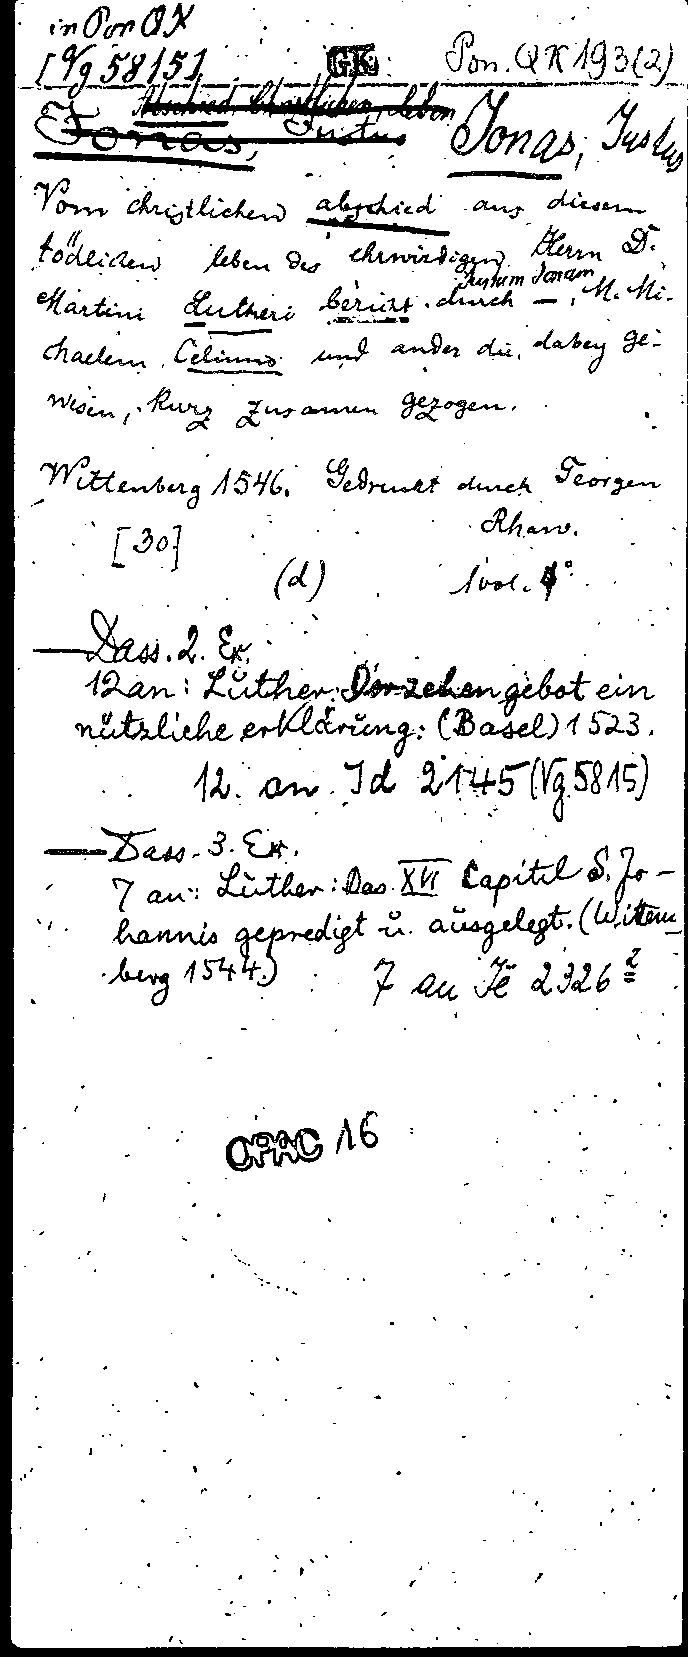 in Pon QK
[Vg 5815] GK Pon. QK 193(2)
Abschied, Christlichen, leben
Jonas, Justus Jonas, Justus
Vom christlichen abschied aus diesem
tödlichen leben des ehrwirdigen Herrn D.
Justum Jonam
Martini Lutheri bericht durch — , M. Mi-
chaelem Celium und ander die dabey ge-
wesen, kurz zusamen gezogen.
Wittenberg 1546. Gedruckt durch Georgen
Rhaw.
[30]
(d) 1 vol. 4°
— Dass. 2. Ex.
12 an: Luther: Der zehen gebot ein
nützliche erklärung: (Basel) 1523.
12. an Id 2145 (Vg 5815)
— Dass. 3. Ex.
7 an: Luther: Das XVI Capitel S. Jo-
hannis gepredigt u. ausgelegt. (Wittem
berg 1544.)
7 an Je 2326 2
OPAC 16